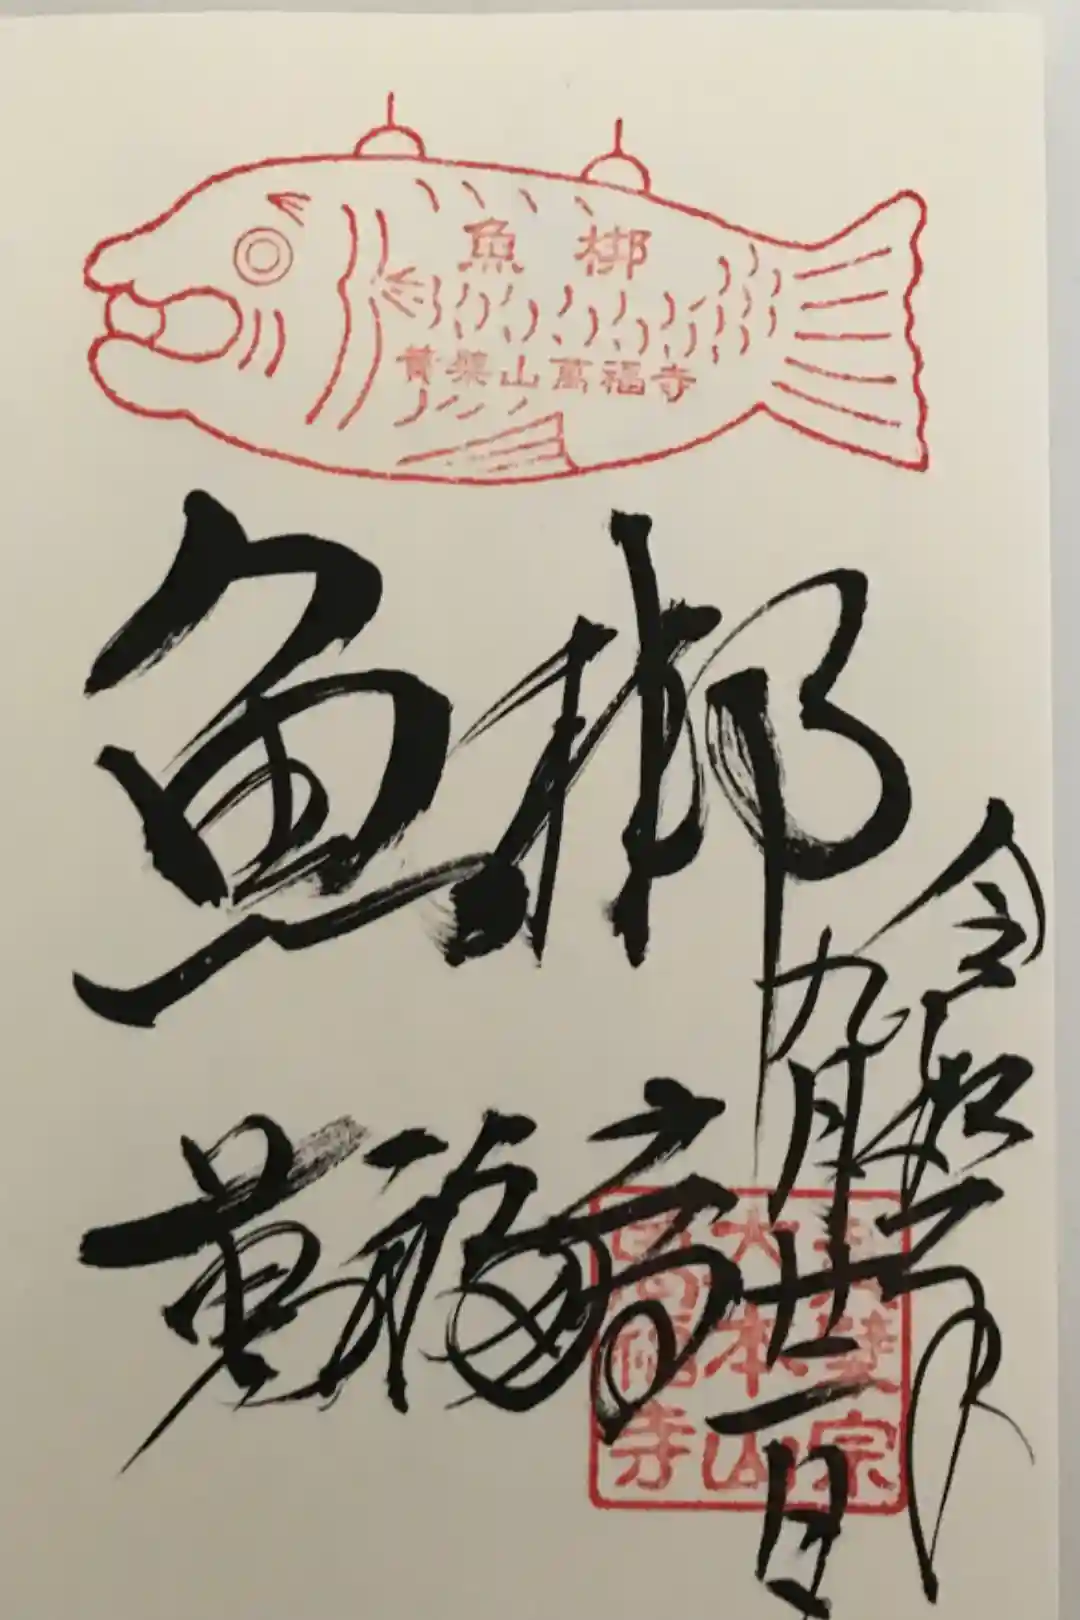 魚梆
黄檗山萬福寺
魚梆
令和
九月廿一日
黄檗宗
大本山
萬福寺